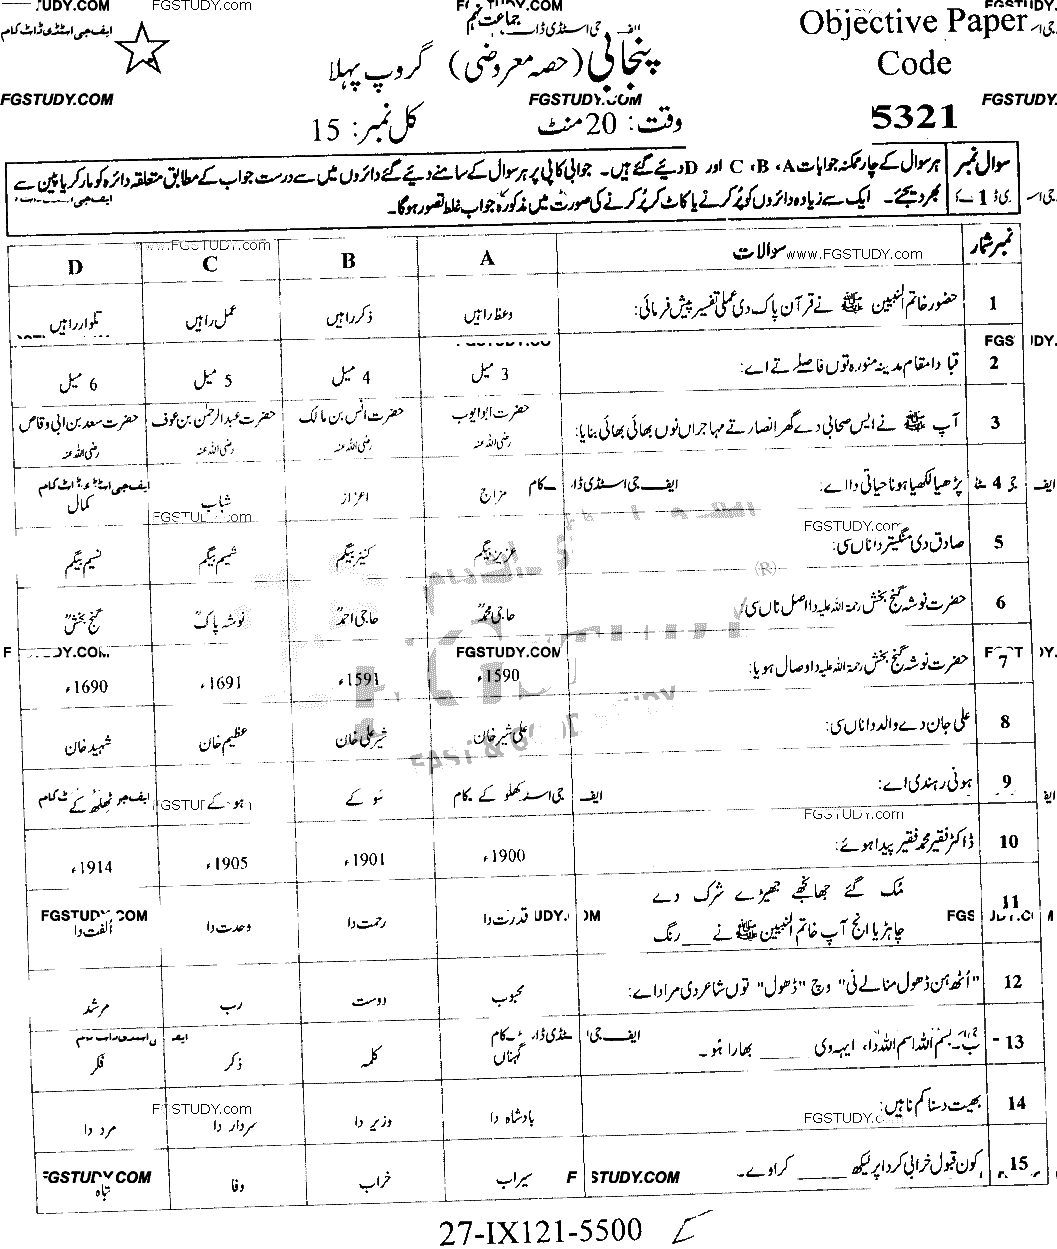 FGSTUDY.COM
Objective Paper
Code
5321
جماعت نہم
پنجابی (حصہ معروضی) گروپ پہلا
وقت: 20 منٹ کل نمبر: 15
FGSTUDY.COM FGSTUDY.COM FGSTUDY.COM
سوال نمبر 1 ہر سوال کے چار ممکنہ جوابات A، B، C اور D دیے گئے ہیں۔ جوابی کاپی پر ہر سوال کے سامنے دیے گئے دائروں میں سے درست جواب کے مطابق متعلقہ دائرہ کو مارکر یا پین سے
بھر دیجئے۔ ایک سے زیادہ دائروں کو پُر کرنے یا کاٹ کر پُر کرنے کی صورت میں مذکورہ جواب غلط تصور ہوگا۔
نمبر شمار سوالات www.FGSTUDY.com A B C D
1 حضور خاتم النبیین ﷺ نے قرآن پاک دی عملی تفسیر پیش فرمائی: وعظ راہیں ذکر راہیں عمل راہیں تلوار راہیں
2 قبا دا مقام مدینہ منورہ توں فاصلے تے اے: 3 میل 4 میل 5 میل 6 میل
3 آپ ﷺ نے ایس صحابی دے گھر انصار تے مہاجراں نوں بھائی بھائی بنایا: حضرت ابو ایوب رضی اللہ عنہ حضرت انس بن مالک رضی اللہ عنہ حضرت عبدالرحمٰن بن عوف رضی اللہ عنہ حضرت سعد بن ابی وقاص رضی اللہ عنہ
4 پڑھیا لکھیا ہونا حیاتی دا اے: مزاج اعزاز شباب کمال
5 صادق دی منگیتر دا ناں سی: عزیز بیگم کنیز بیگم شمیم بیگم نسیم بیگم
6 حضرت نوشہ گنج بخش رحمۃ اللہ علیہ دا اصل ناں سی: حاجی محمدؒ حاجی احمدؒ نوشہ پاکؒ گنج بخشؒ
7 حضرت نوشہ گنج بخش رحمۃ اللہ علیہ دا وصال ہویا: 1590ء 1591ء 1691ء 1690ء
8 علی جان دے والد دا ناں سی: علی شیر خان شیر علی خان عظیم خان شہید خان
9 ہونی رہندی اے: کھلو کے سَو کے ہو کے
10 ڈاکٹر فقیر محمد فقیر پیدا ہوئے: 1900ء 1901ء 1905ء 1914ء
11 مُک گئے جھانجھے جھیڑے شرک دے
چاہڑیا انج آپ خاتم النبیین ﷺ نے ____ رنگ قدرت دا رحمت دا وحدت دا اُلفت دا
12 "اُٹھ ہن ڈھول منا لے نی" وچ "ڈھول" توں شاعر دی مراد اے: محبوب دوست رب مرشد
13 بسم اللہ اسم اللہ دا، ایہہ وی ____ بھارا ہُو۔ گہناں کلمہ ذکر فکر
14 بھیت دسنا کم ناہیں: بادشاہ دا وزیر دا سردار دا مرد دا
15 کون قبول خرابی کردا پر لیکھ ____ کراوے۔ سیراب خراب وفا تباہ
27-IX121-5500